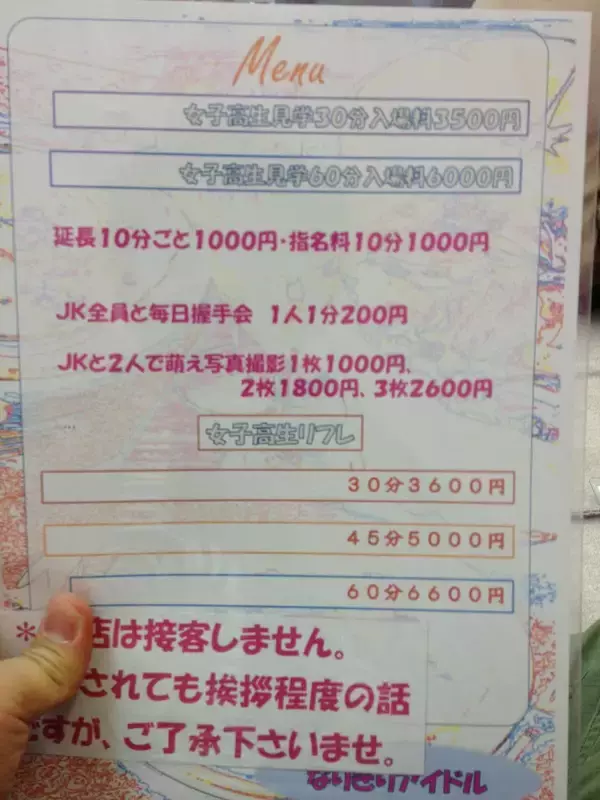 Menu
女子高生見学30分入場料3500円
女子高生見学60分入場料6000円
延長10分ごと1000円・指名料10分1000円
JK全員と毎日握手会 1人1分200円
JKと2人で萌え写真撮影1枚1000円、
2枚1800円、3枚2600円
女子高生リフレ
30分3600円
45分5000円
60分6600円
*店は接客しません。
されても挨拶程度の話
ですが、ご了承下さいませ。
なりきりアイドル